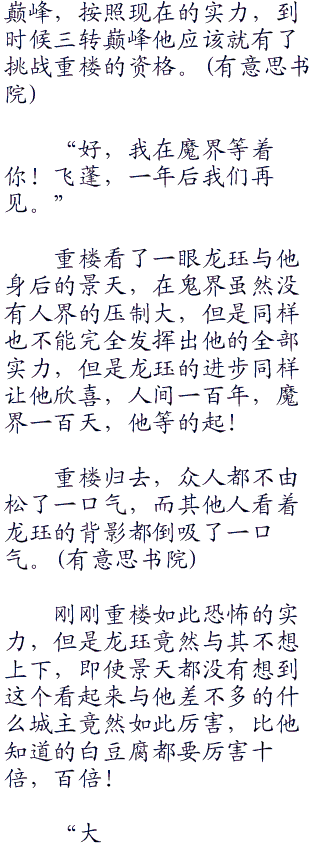 巅峰，按照现在的实力，到
时候三转巅峰他应该就有了
挑战重楼的资格。(有意思书
院)
“好，我在魔界等着
你！飞蓬，一年后我们再
见。”
重楼看了一眼龙珏与他
身后的景天，在鬼界虽然没
有人界的压制大，但是同样
也不能完全发挥出他的全部
实力，但是龙珏的进步同样
让他欣喜，人间一百年，魔
界一百天，他等的起！
重楼归去，众人都不由
松了一口气，而其他人看着
龙珏的背影都倒吸了一口
气。(有意思书院)
刚刚重楼如此恐怖的实
力，但是龙珏竟然与其不想
上下，即使景天都没有想到
这个看起来与他差不多的什
么城主竟然如此厉害，比他
知道的白豆腐都要厉害十
倍，百倍！
“大